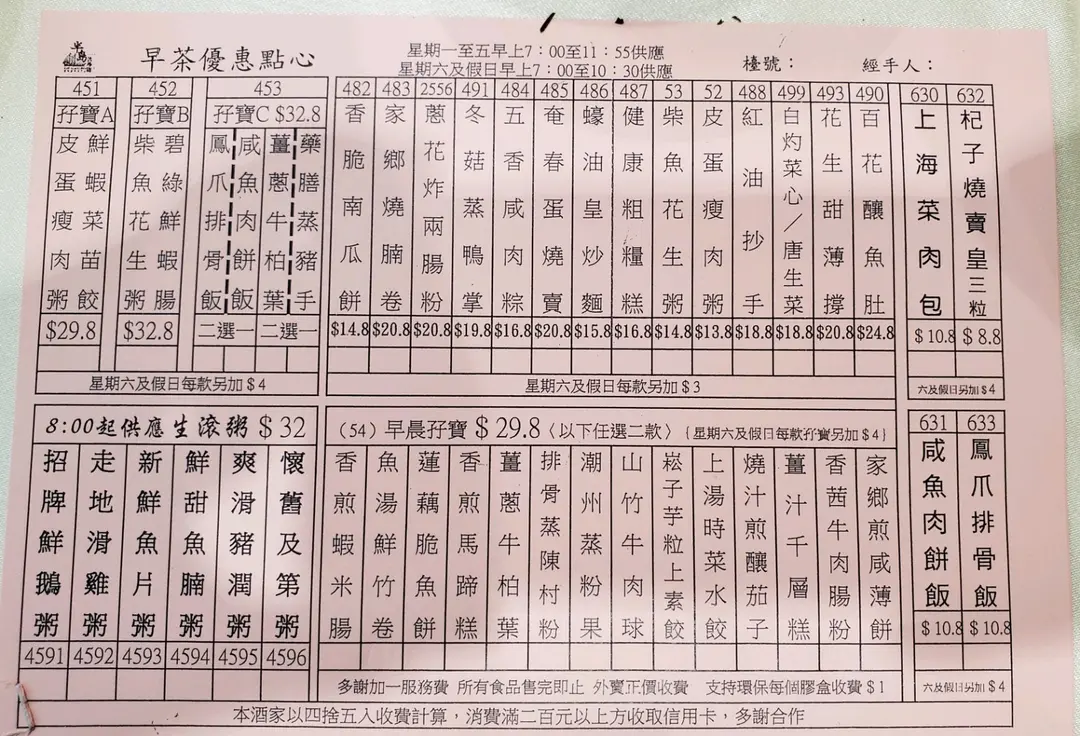 早茶優惠點心
星期一至五早上7：00至11：55供應
星期六及假日早上7：00至10：30供應
檯號：
經手人：
451
孖寶A
皮蛋瘦肉粥
鮮蝦菜苗餃
$29.8
452
孖寶B
柴魚花生粥
碧綠鮮蝦腸
$32.8
453
孖寶C $32.8
鳳爪排骨飯
咸魚肉餅飯
二選一
薑蔥牛柏葉
藥膳蒸豬手
二選一
星期六及假日每款另加＄4
482
香脆南瓜餅
$14.8
483
家鄉燒腩卷
$20.8
2556
蔥花炸兩腸粉
$20.8
491
冬菇蒸鴨掌
$19.8
484
五香咸肉粽
$16.8
485
奄春蛋燒賣
$20.8
486
蠔油皇炒麵
$15.8
487
健康粗糧糕
$16.8
53
柴魚花生粥
$14.8
52
皮蛋瘦肉粥
$13.8
488
紅油抄手
$18.8
499
白灼菜心／唐生菜
$18.8
493
花生甜薄撐
$20.8
490
百花釀魚肚
$24.8
星期六及假日每款另加＄3
630
上海菜肉包
$10.8
632
杞子燒賣皇三粒
$8.8
六及假日另加＄4
8:00起供應生滾粥 $32
招牌鮮鵝粥
4591
走地滑雞粥
4592
新鮮魚片粥
4593
鮮甜魚腩粥
4594
爽滑豬潤粥
4595
懷舊及第粥
4596
（54）早晨孖寶＄29.8〈以下任選二款〉｛星期六及假日每款孖寶另加＄4｝
香煎蝦米腸
魚湯鮮竹卷
蓮藕脆魚餅
香煎馬蹄糕
薑蔥牛柏葉
排骨蒸陳村粉
潮州蒸粉果
山竹牛肉球
崧子芋粒上素餃
上湯時菜水餃
燒汁煎釀茄子
薑汁千層糕
香茜牛肉腸粉
家鄉煎咸薄餅
多謝加一服務費 所有食品售完即止 外賣正價收費 支持環保每個膠盒收費＄1
631
咸魚肉餅飯
$10.8
633
鳳爪排骨飯
$10.8
六及假日另加＄4
本酒家以四捨五入收費計算，消費滿二百元以上方收取信用卡，多謝合作